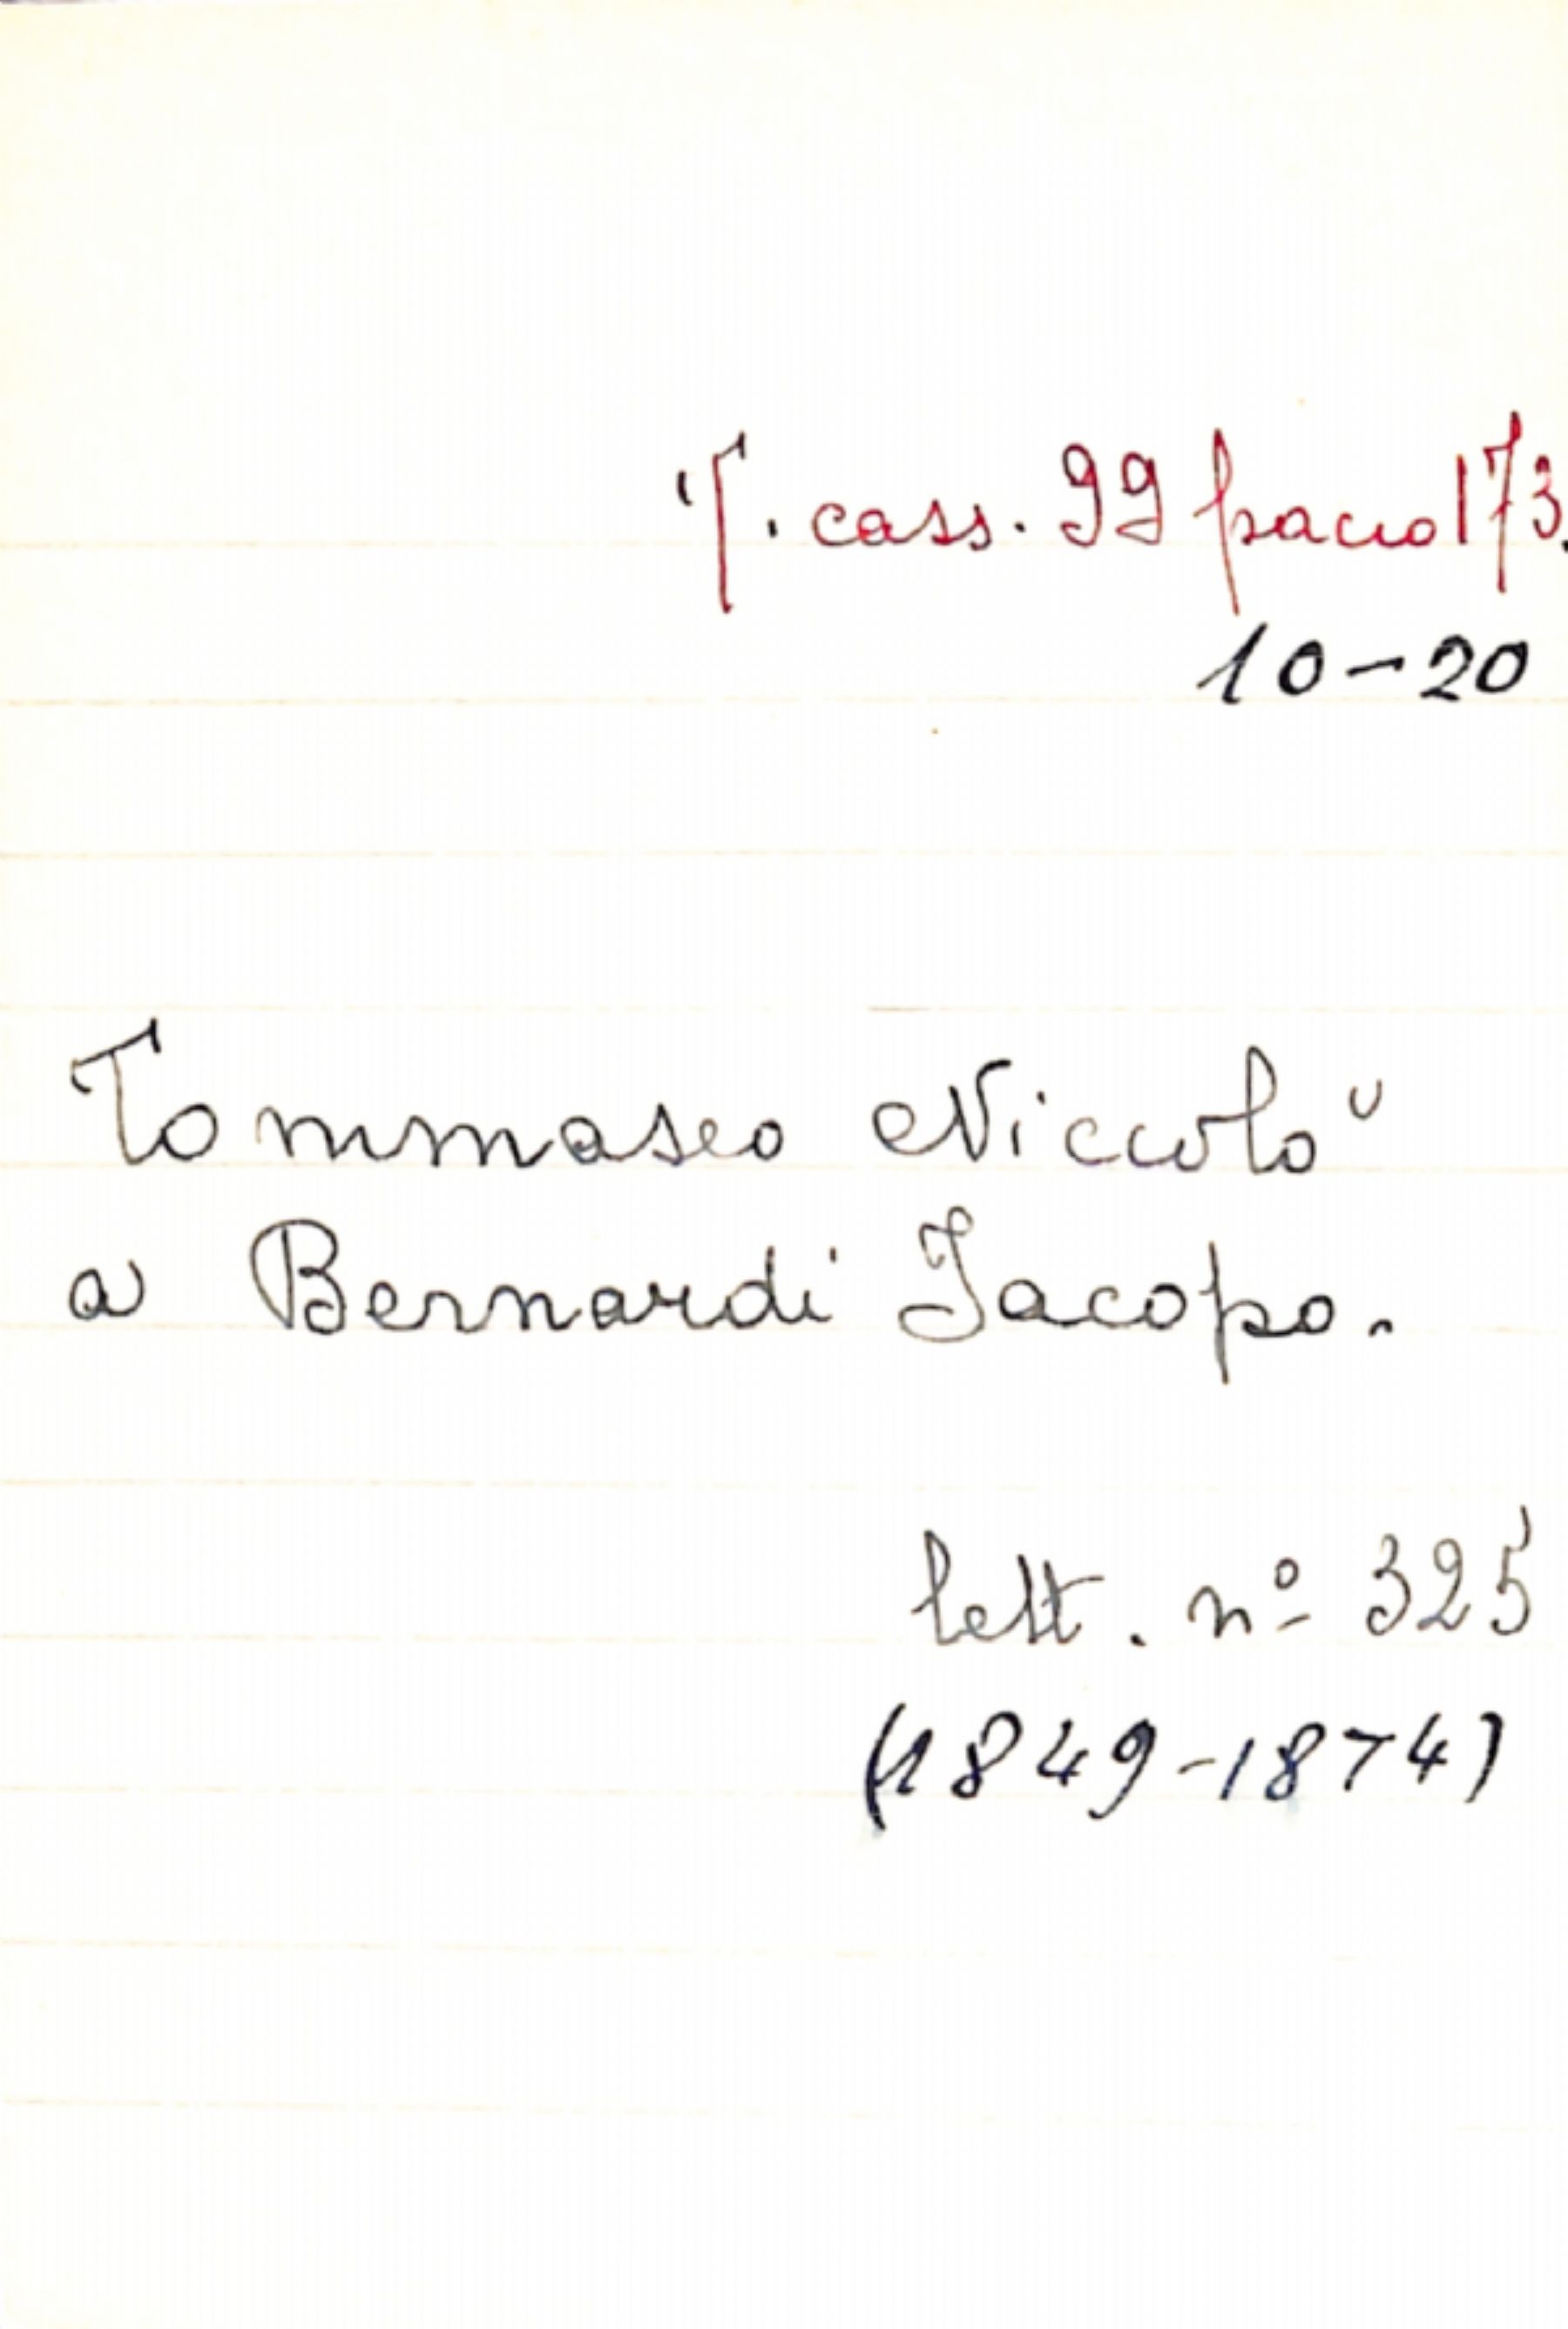 T. cass. 99 pacco 173.
10-20
Tommaseo Niccolò
a Bernardi Jacopo.
lett. nº 325
(1849-1874)